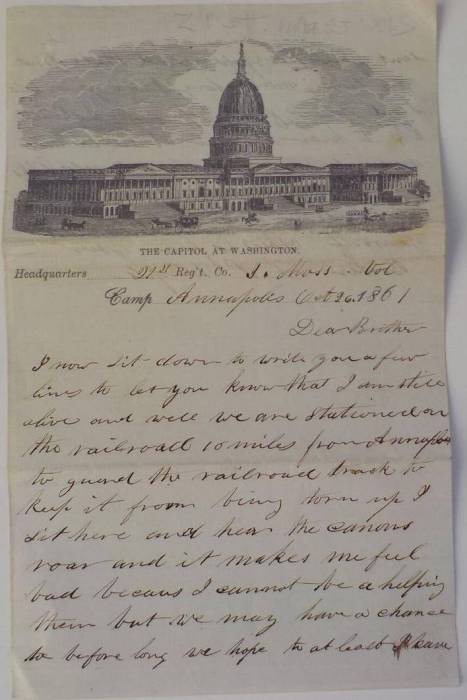 THE CAPITOL AT WASHINGTON.
Headquarters 21st Reg't. Co. I. Mass. Vol
Camp Annapolis Oct 26. 1861
Dear Brother
I now sit down to write you a few
lines to let you know that I am still
alive and well we are stationed on
the railroad 10 miles from Annapolis
to guard the railroad track to
keep it from being torn up I
sit here and hear the canons
roar and it makes me feel
bad becaus I cannot be a helping
them but we may have a chance
to before long we hope to at least I